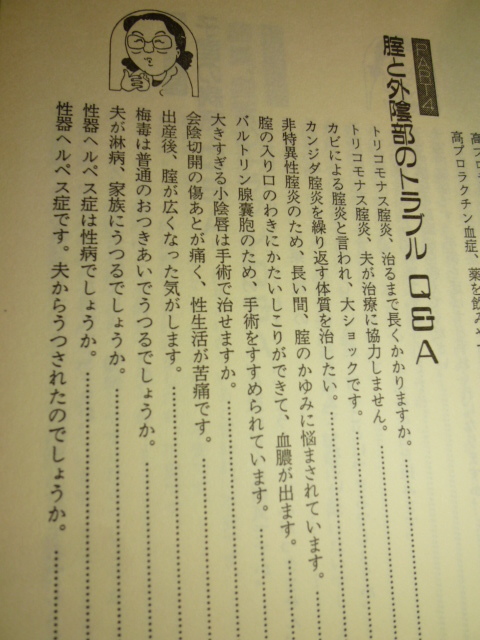 高プロラクチン血症、薬を飲み
PART4
膣と外陰部のトラブル Q&A
トリコモナス腟炎、治るまで長くかかりますか。
トリコモナス腟炎、夫が治療に協力しません。
カビによる腟炎と言われ、大ショックです。
カンジダ腟炎を繰り返す体質を治したい。
非特異性腟炎のため、長い間、腟のかゆみに悩まされています。
腟の入り口のわきにかたいしこりができて、血膿が出ます。
バルトリン腺嚢胞のため、手術をすすめられています。
大きすぎる小陰唇は手術で治せますか。
会陰切開の傷あとが痛く、性生活が苦痛です。
出産後、腟が広くなった気がします。
梅毒は普通のおつきあいでうつるでしょうか。
夫が淋病、家族にうつるでしょうか。
性器ヘルペス症は性病でしょうか。
性器ヘルペス症です。夫からうつされたのでしょうか。